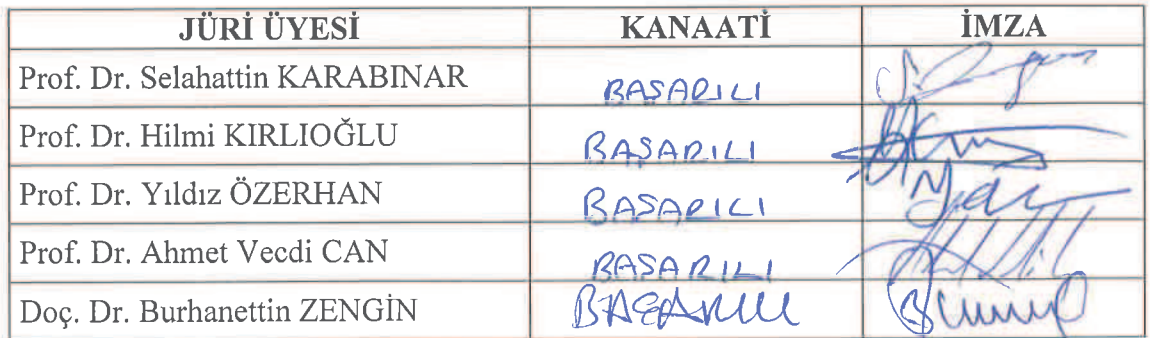 JÜRİ ÜYESİ KANAATİ İMZA
Prof. Dr. Selahattin KARABINAR BASARILI
Prof. Dr. Hilmi KIRLIOĞLU BASARILI
Prof. Dr. Yıldız ÖZERHAN BASARILI
Prof. Dr. Ahmet Vecdi CAN BASARILI
Doç. Dr. Burhanettin ZENGİN BAŞARILI